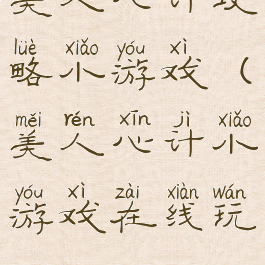 美人心计攻
lüè xiǎo yóu xì
略小游戏(
měi rén xīn jì xiǎo
美人心计小
yóu xì zài xiàn wán
游戏在线玩